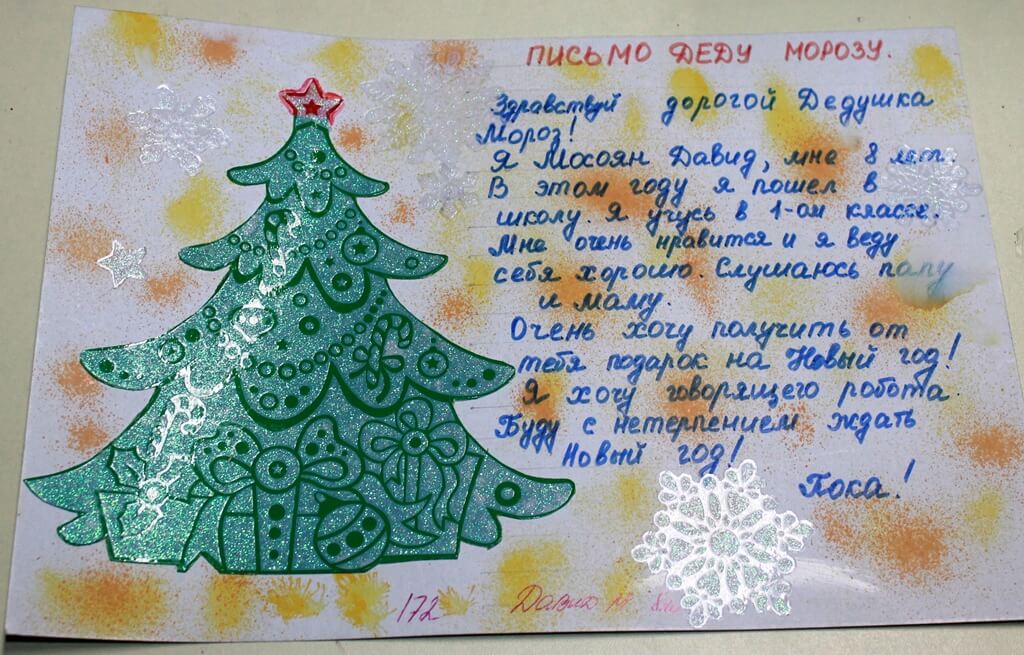 ПИСЬМО ДЕДУ МОРОЗУ.
Здравствуй дорогой Дедушка
Мороз!
Я Мосоян Давид, мне 8 лет.
В этом году я пошел в
школу. Я учусь в 1-ом классе.
Мне очень нравится и я веду
себя хорошо. Слушаюсь папу
и маму.
Очень хочу получить от
тебя подарок на Новый год!
Я хочу говорящего робота
Буду с нетерпением ждать
Новый год!
Пока!
172 Давид М